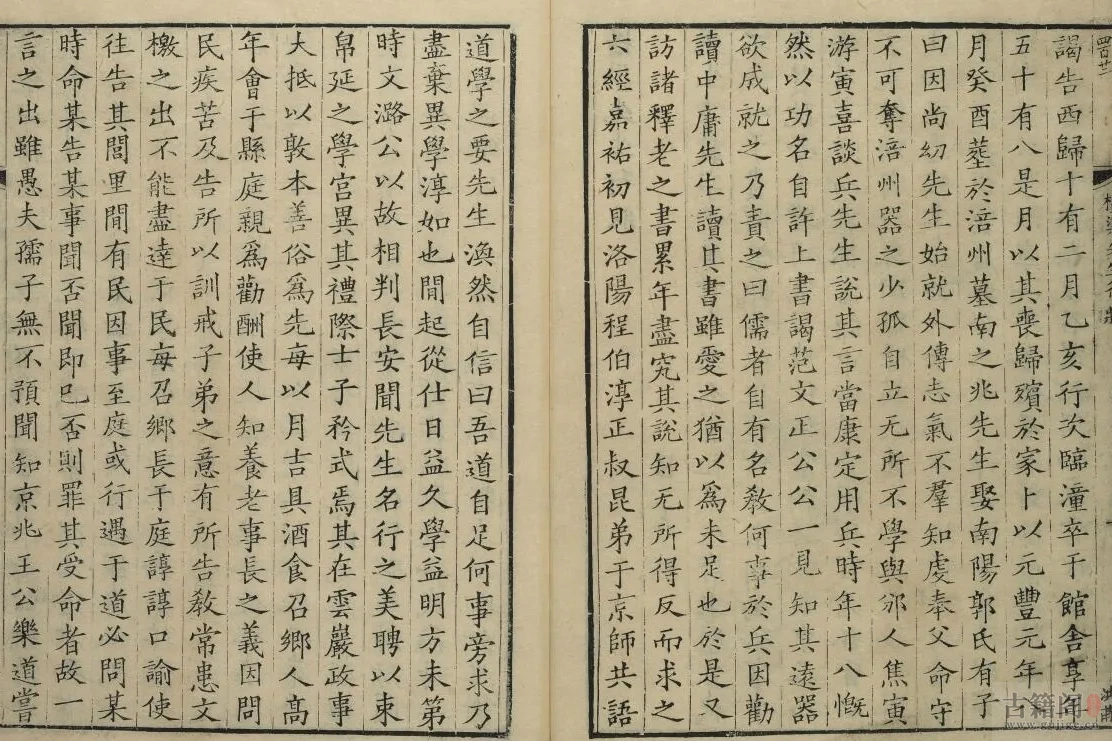 謁告西歸十有二月乙亥行次臨潼卒于館舍享年
五十有八是月以其喪歸殯於家卜以元豐元年
月癸酉塟於涪州墓南之兆先生娶南陽郭氏有子
曰因尚幼先生始就外傅志氣不羣知虔奉父命守
不可奪涪州器之少孤自立无所不學與邠人焦寅
游寅喜談兵先生說其言當康定用兵時年十八慨
然以功名自許上書謁范文正公公一見知其遠器
欲成就之乃責之曰儒者自有名敎何事於兵因勸
讀中庸先生讀其書雖愛之猶以爲未足也於是又
訪諸釋老之書累年盡究其說知无所得反而求之
六經嘉祐初見洛陽程伯淳正叔昆弟于京師共語
道學之要先生渙然自信曰吾道自足何事旁求乃
盡棄異學淳如也閒起從仕日益久學益明方未第
時文潞公以故相判長安聞先生名行之美聘以束
帛延之學宮異其禮際士子矜式焉其在雲巖政事
大抵以敦本善俗爲先每以月吉具酒食召鄉人高
年會于縣庭親爲勸酬使人知養老事長之義因問
民疾苦及告所以訓戒子弟之意有所告敎常患文
檄之出不能盡達于民每召鄉長于庭諄諄口諭使
往告其閭里閒有民因事至庭或行遇于道必問某
時命某告某事聞否聞即已否則罪其受命者故一
言之出雖愚夫孺子無不預聞知京兆王公樂道嘗